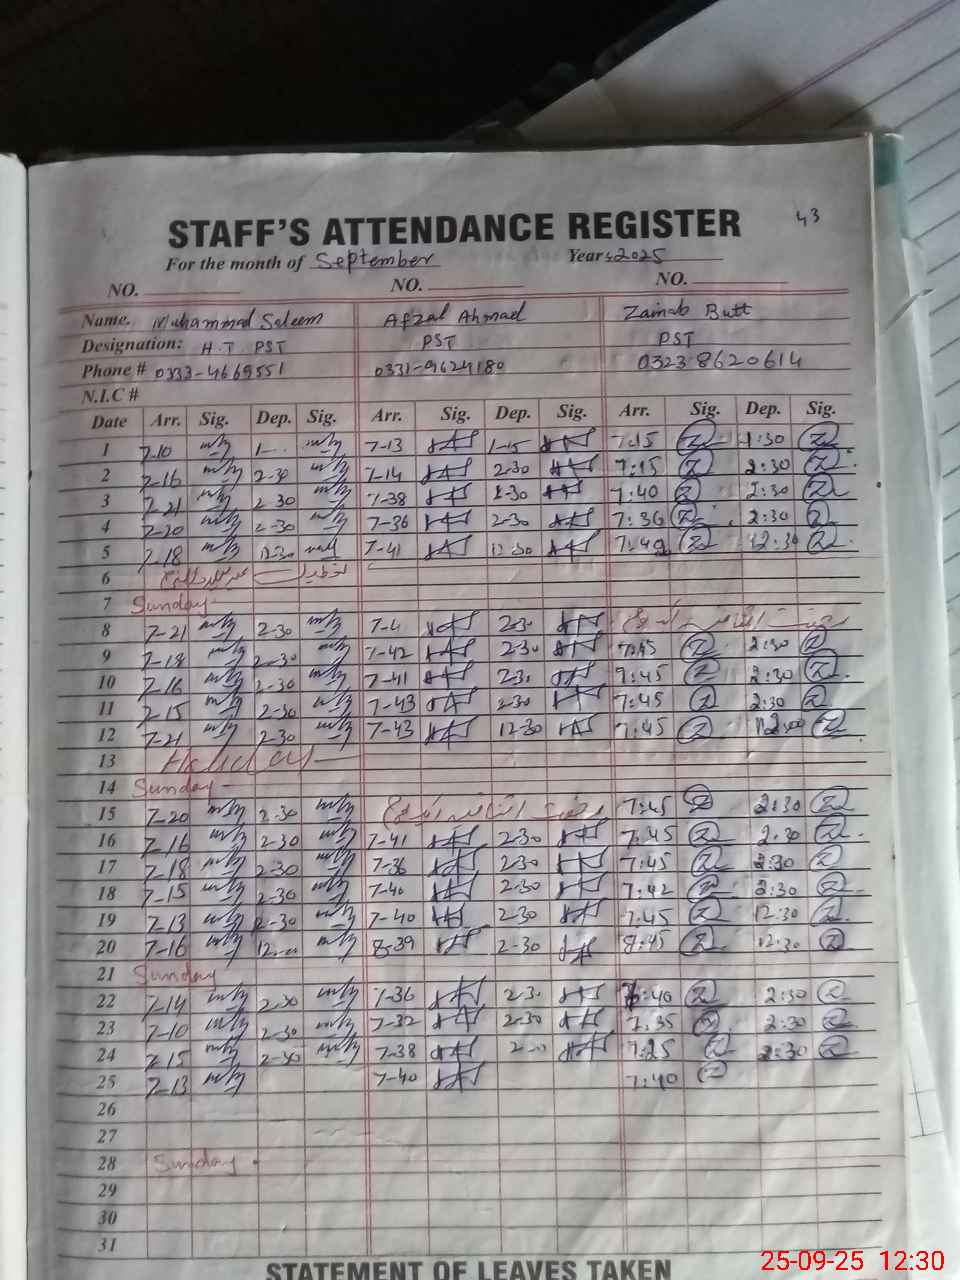 43
STAFF'S ATTENDANCE REGISTER
For the month of September Year: 2025
NO. NO. NO.
Name. Muhammad Saleem Afzal Ahmad Zainab Butt
Designation: H.T. PST PST PST
Phone # 0333-4669551 0331-9624180 0323 8620614
N.I.C #
Date Arr. Sig. Dep. Sig. Arr. Sig. Dep. Sig. Arr. Sig. Dep. Sig.
1 7-10 7-13 1-15 7:15 1:30
2 7-16 2-30 7-14 2-30 7:15 2:30
3 7-21 2-30 7-38 2-30 7:40 2:30
4 7-20 2-30 7-36 2-30 7:36 2:30
5 7-18 12-30 7-41 12-30 7:42 12:30
6 تعطیل
7 Sunday
8 7-21 2-30 7-4 2-30 رخصت اتفاقیہ
9 7-18 2-30 7-42 2-30 7:45 2:30
10 7-16 2-30 7-41 2-30 7:45 2:30
11 7-15 2-30 7-43 2-30 7:45 2:30
12 7-21 2-30 7-43 12-30 7:45
13 Holiday
14 Sunday
15 7-20 2-30 رخصت اتفاقیہ 7:45 2:30
16 7-16 2-30 7-41 2-30 7:45 2:30
17 7-18 2-30 7-36 2-30 7:45 2:30
18 7-15 2-30 7-40 2-30 7:42 2:30
19 7-13 7-40 2-30 7:45 12:30
20 7-16 8-39 2-30 8:45 12:30
21 Sunday
22 7-14 2-30 7-36 2-30 7:40 2:30
23 7-10 2-30 7-32 2-30 7:35 2:30
24 7-15 2-30 7-38 7:25 2:30
25 7-13 7-40 7:40
26
27
28 Sunday
29
30
31
STATEMENT OF LEAVES TAKEN
25-09-25 12:30